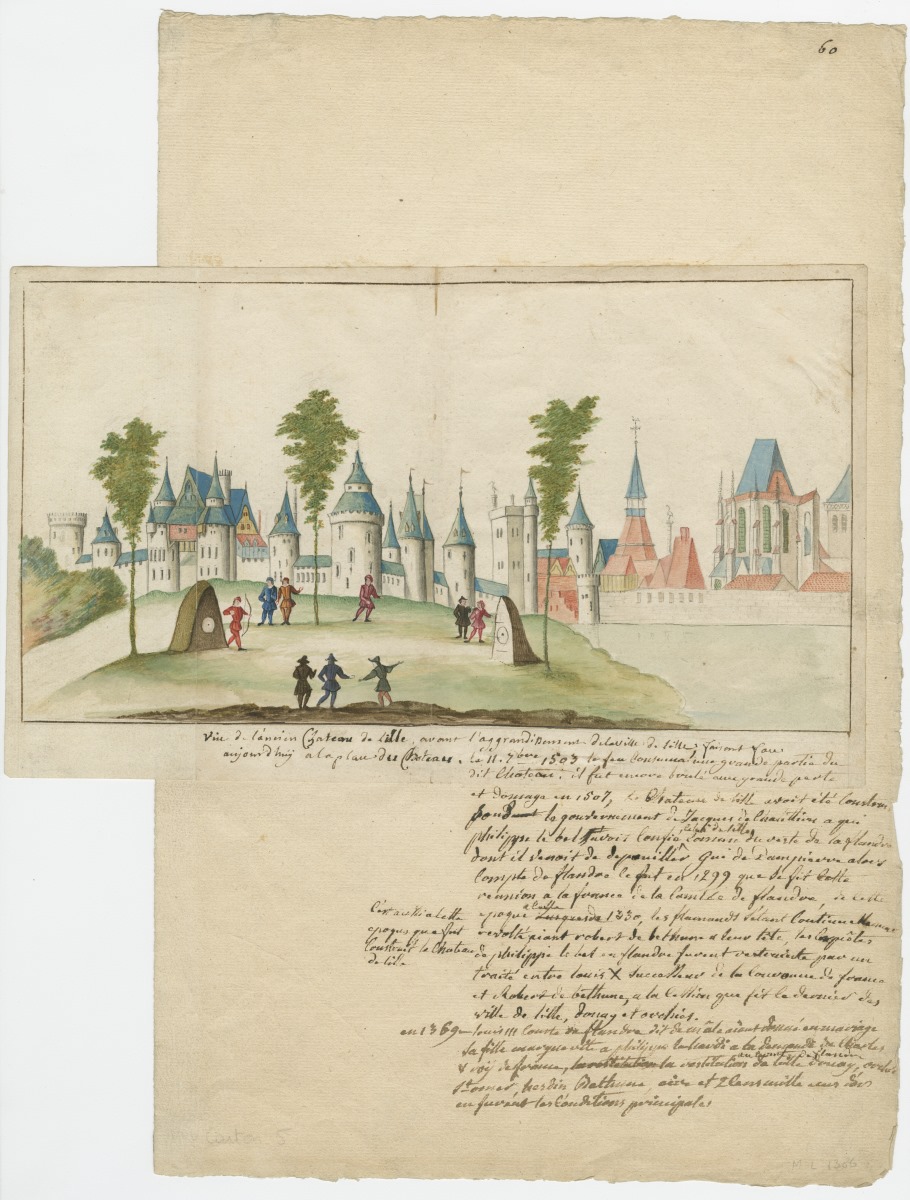 60
Vüe de l'ancien Chateau de Lille, avant l'aggrandissement de la ville de Lille, faisant face
aujourd'huy a la place du Chateau. Le 11. 7bre 1503 le feu consuma une grande partie du
dit Chateau. il fut encore brulé avec grande perte
et domage en 1507, Le Chateau de Lille avoit été
le gouvernement de Jacques de Chatillion a qui
philippe le bel l'avoit confié de la flandre
dont il venoit de depouiller Gui de Dampierre alors
Compte de flandre ce fut en 1299 que se fit cette
reunion a la france de la Comtée de flandre, de cette
epoque 1230, les flamands s'etant Continuellement
revolté aiant robert de bethune a leur tête, les Conquêtes
de philippe le bel en flandre furent restreinte par un
traité entre louis X successeur de la Couronne de france
et Robert de bethune, a la Cession que fit le dernier des
ville de lille, douay et orchies.
C'est aussi a cette
epoque que fut
Construit le Chateau
de Lille
en 1369 louis III Comte de flandre dit de mâle aiant donné en mariage
sa fille marguerite a philippe le hardi a la demande de Charles
V roÿ de france, la restitution de lille douay,
St omer, hesdin Bethune, aire et
en furent les Conditions principales
5
M L 1306